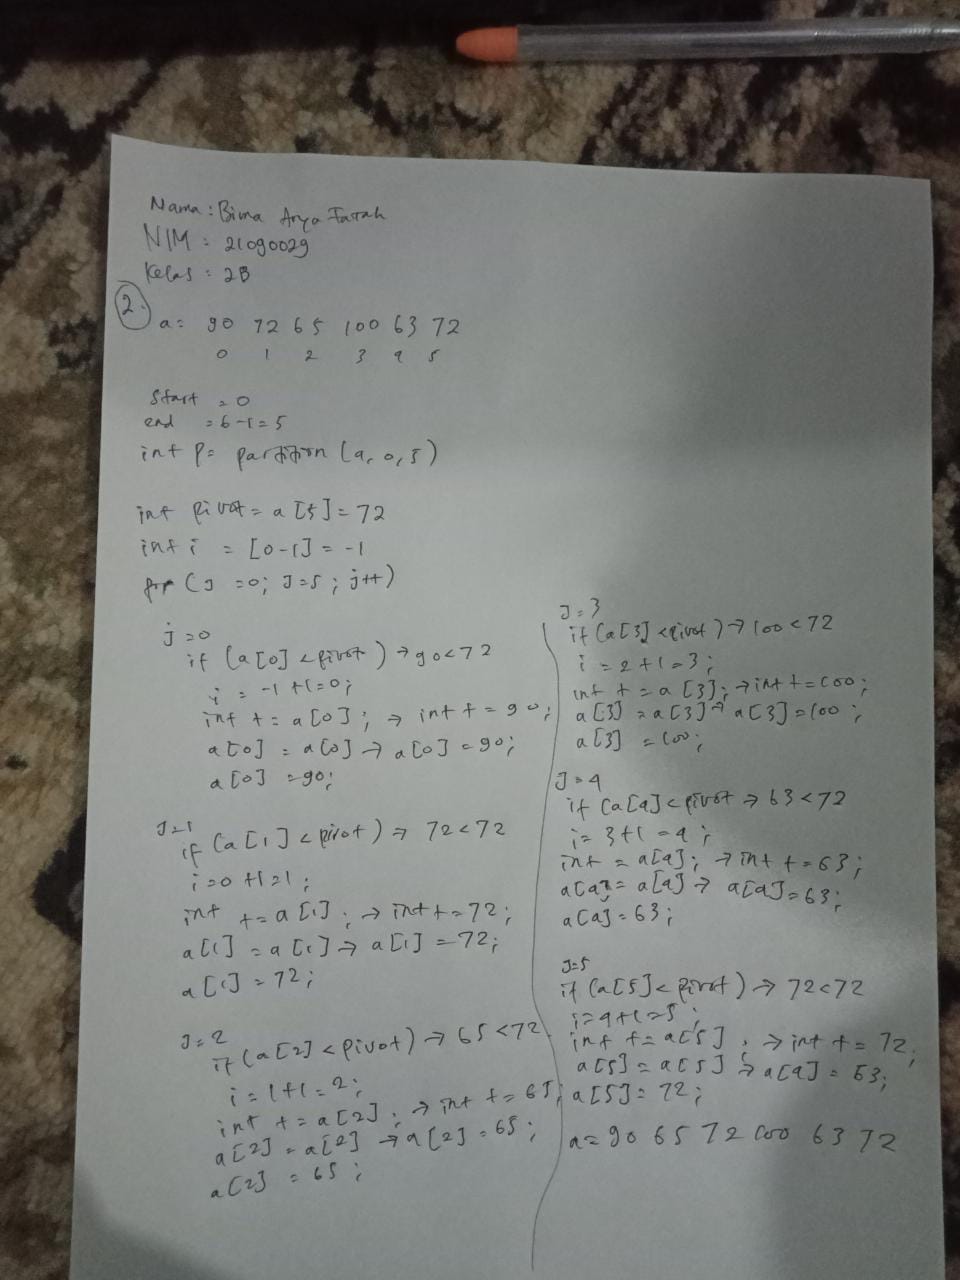 Nama : Bima Arya Farah
NIM : 21090029
Kelas : 2B
2.
a = 90 72 65 100 63 72
0 1 2 3 4 5
Start = 0
end = 6-1 = 5
int p = partition (a, 0, 5)
int pivot = a [5] = 72
int i = [0-1] = -1
for (J = 0; J = 5 ; j++)
j = 0
if (a [0] < pivot) → 90 < 72
i = -1 + 1 = 0;
int t = a [0] ; → int t = 90;
a [0] = a [0] → a [0] = 90;
a [0] = 90;
J = 1
if (a [1] < pivot) → 72 < 72
i = 0 + 1 = 1 ;
int t = a [1] ; → int t = 72;
a [1] = a [1] → a [1] = 72;
a [1] = 72;
J = 2
if (a [2] < pivot) → 65 < 72
i = 1+1 = 2;
int t = a [2] ; → int t = 65;
a [2] = a [2] → a [2] = 65 ;
a [2] = 65 ;
J = 3
if (a [3] < pivot) → 100 < 72
i = 2 + 1 = 3 ;
int t = a [3]; → int t = 100;
a [3] = a [3] → a [3] = 100 ;
a [3] = 100 ;
J = 4
if (a [4] < pivot → 63 < 72
i = 3 + 1 = 4 ;
int = a [4] ; → int t = 63 ;
a [4] = a [4] → a [4] = 63;
a [4] = 63 ;
J = 5
if (a [5] < pivot) → 72 < 72
i = 4 + 1 = 5 ;
int t = a [5] ; → int t = 72;
a [5] = a [5] → a [4] = 63;
a [5] = 72 ;
a = 90 65 72 100 63 72